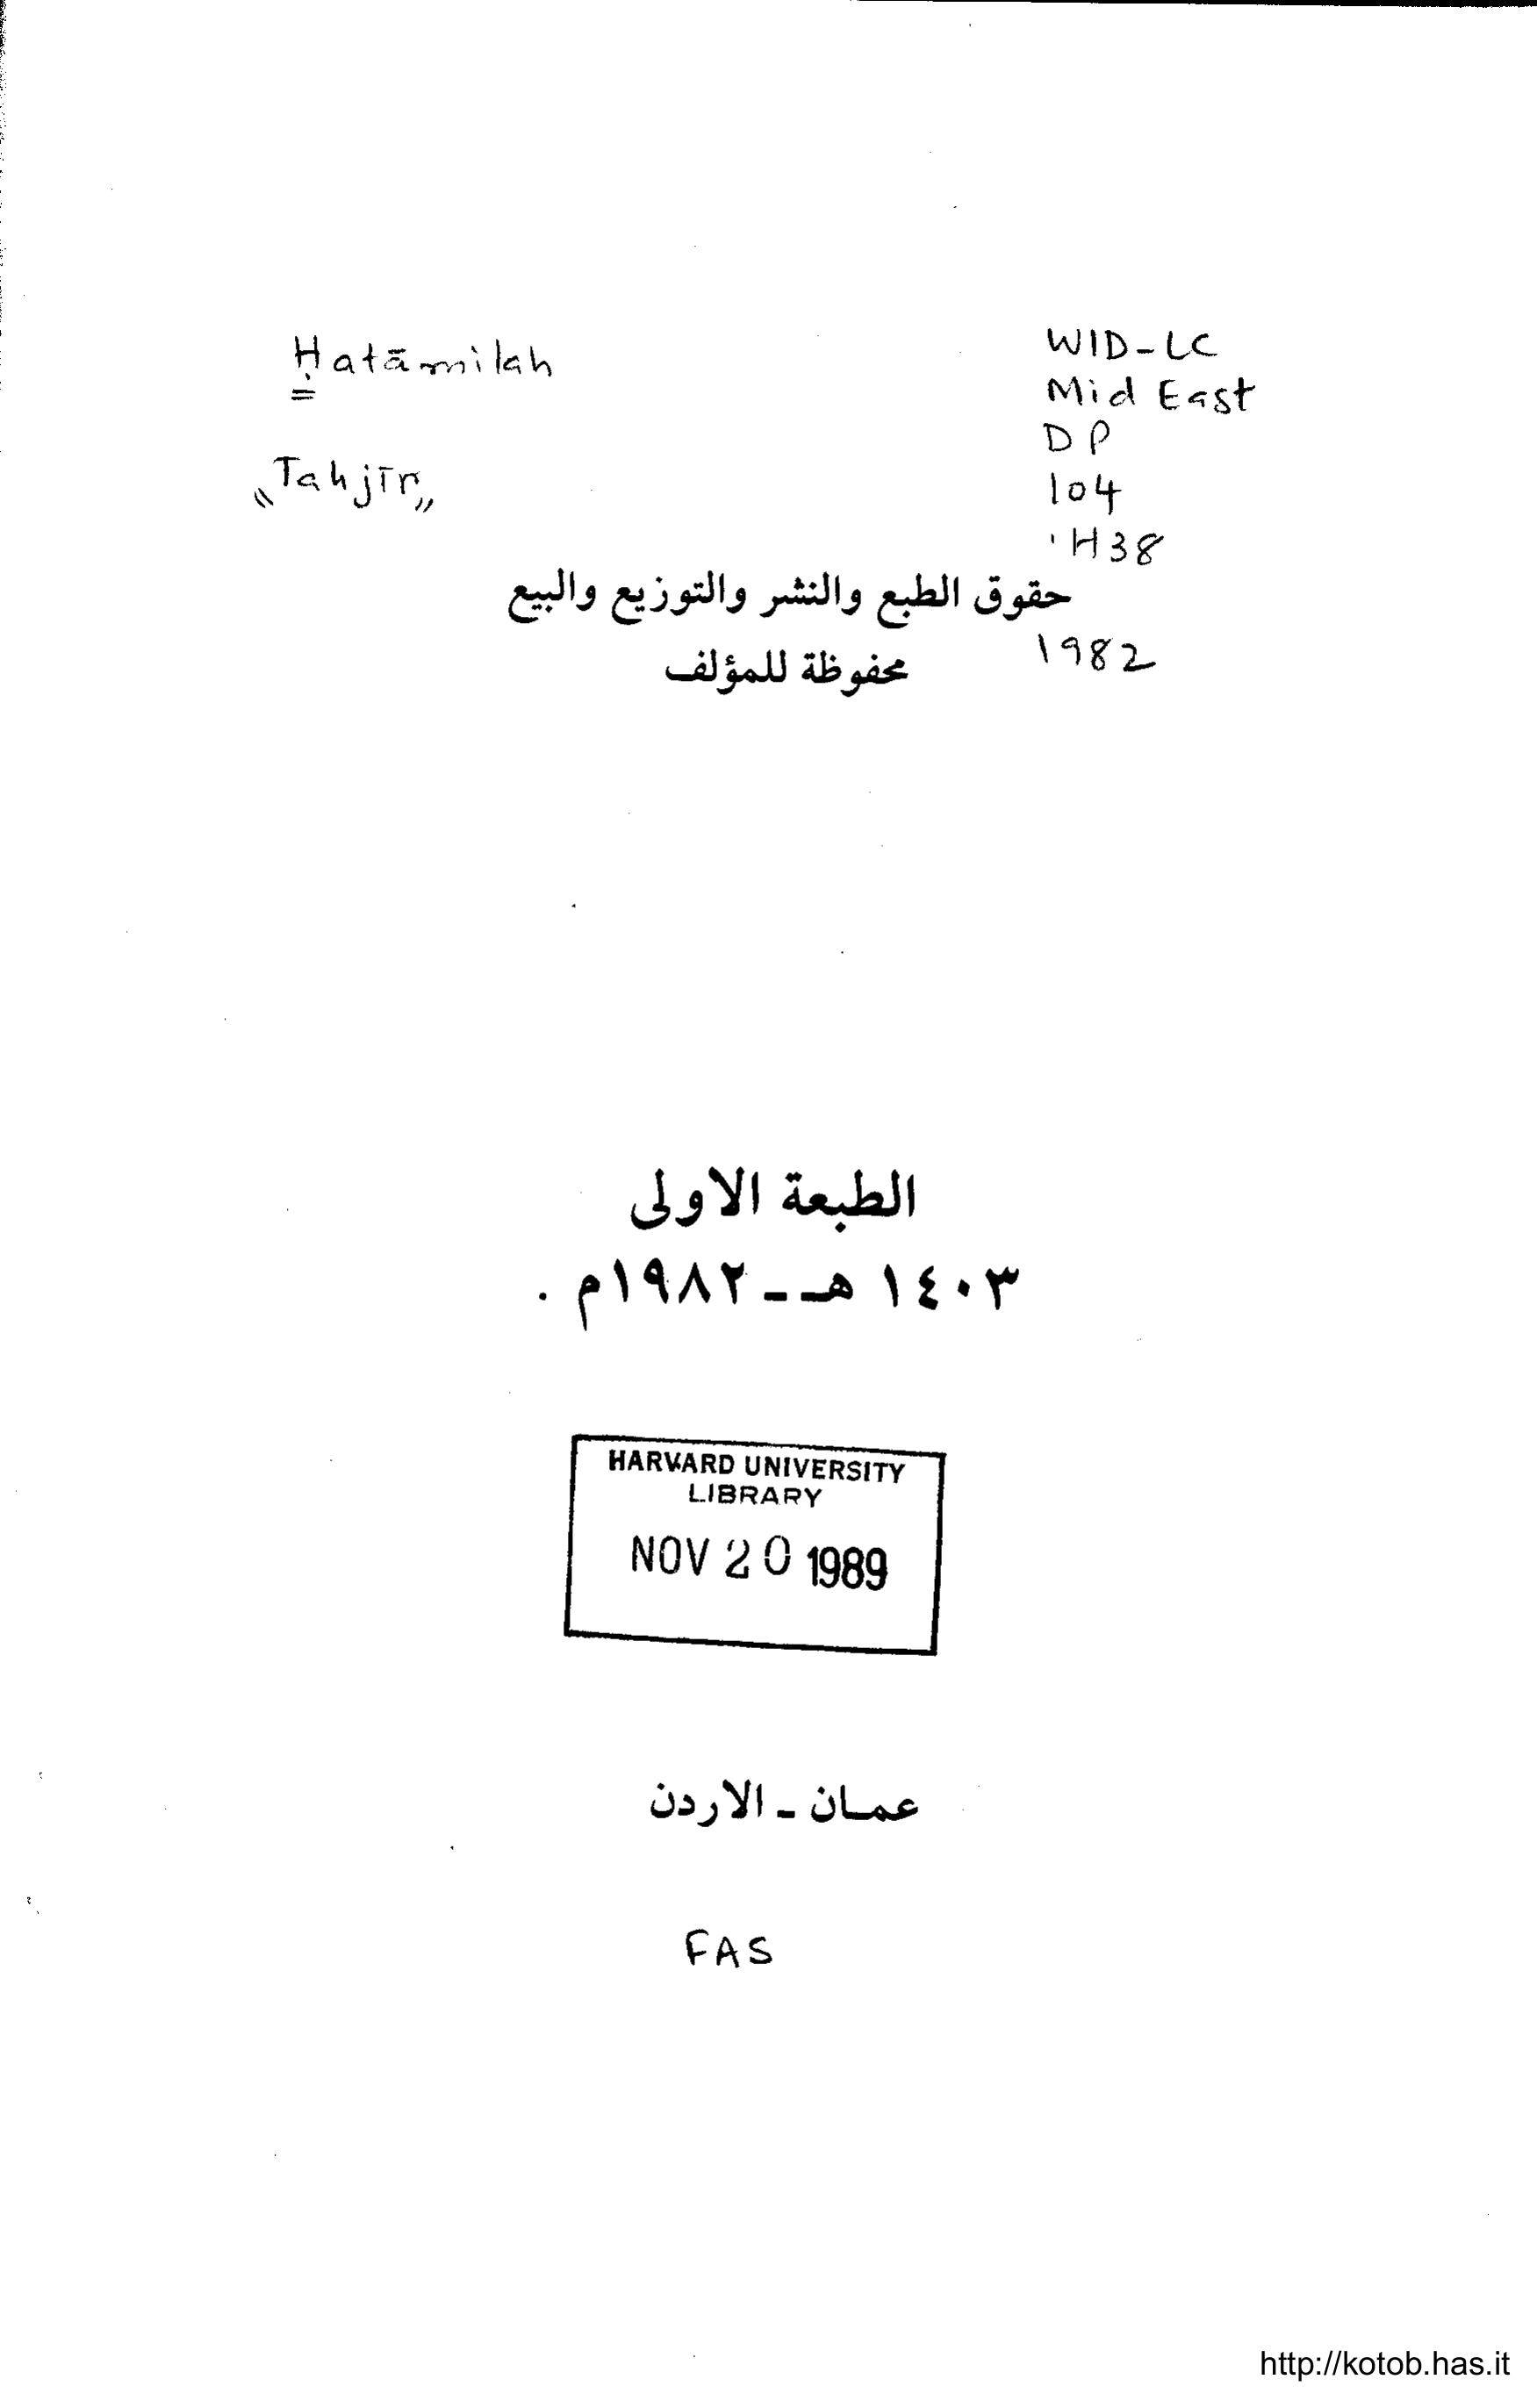 Ḥatāmilah
"Tahjīr"
WID-LC
Mid East
DP
104
.H38
1982
حقوق الطبع والنشر والتوزيع والبيع
محفوظة للمؤلف
الطبعة الاولى
١٤٠٣ هـ - ١٩٨٢م .
HARVARD UNIVERSITY
LIBRARY
NOV 20 1989
عمان - الاردن
FAS
http://kotob.has.it